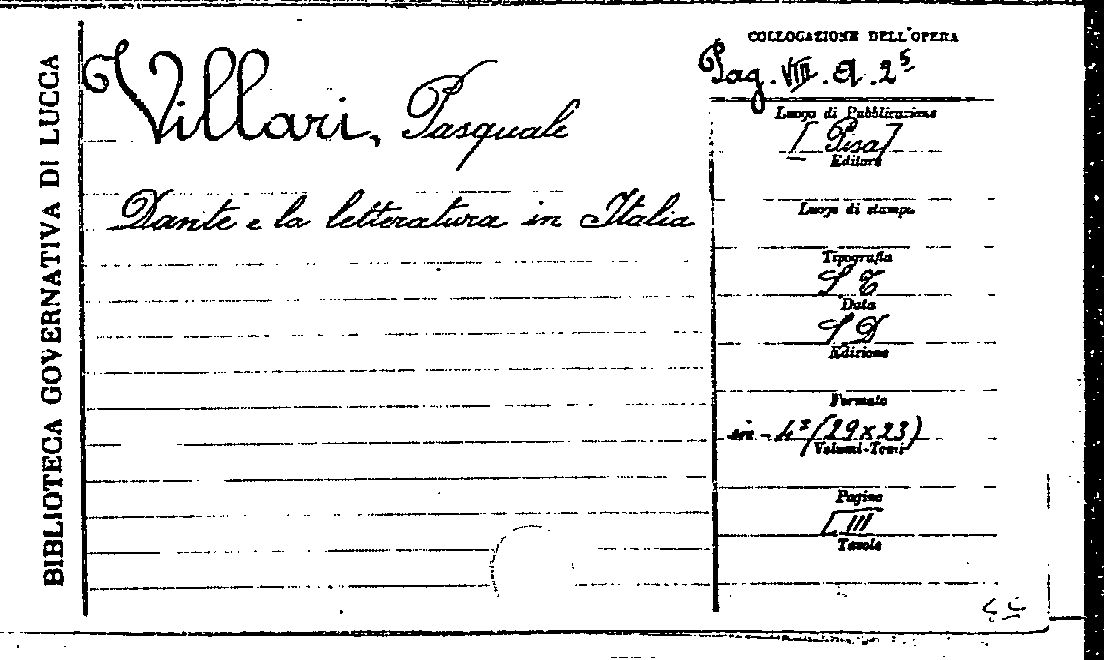 BIBLIOTECA GOVERNATIVA DI LUCCA
Villari, Pasquale
Dante e la letteratura in Italia
COLLOCAZIONE DELL'OPERA
Pag. VIII. A. 2⁵
Luogo di Pubblicazione
[Pisa]
Editore
Luogo di stampa
Tipografia
S T
Data
S D
Edizione
Formato
in-4º (29x23)
Volumi-Tomi
Pagine
III
Tavole